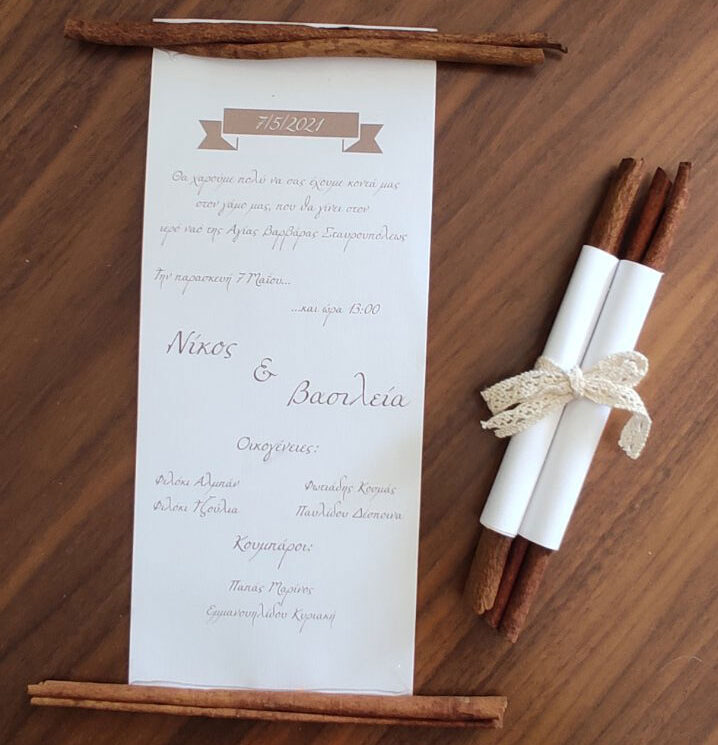 7/5/2021
Θα χαρούμε πολύ να σας έχουμε κοντά μας
στον γάμο μας, που θα γίνει στον
ιερό ναό της Αγίας Βαρβάρας Σταυρουπόλεως
Την παρασκευή 7 Μαΐου...
...και ώρα 13:00
Νίκος
&
Βασιλεία
Οικογένειες:
Φιλόκι Αλμπάν Φωτιαδης Κοσμάς
Φιλόκι Τζούλια Παυλίδου Δέσποινα
Κουμπάροι:
Παπας Μαρίνος
Εμμανουηλίδου Κυριακή